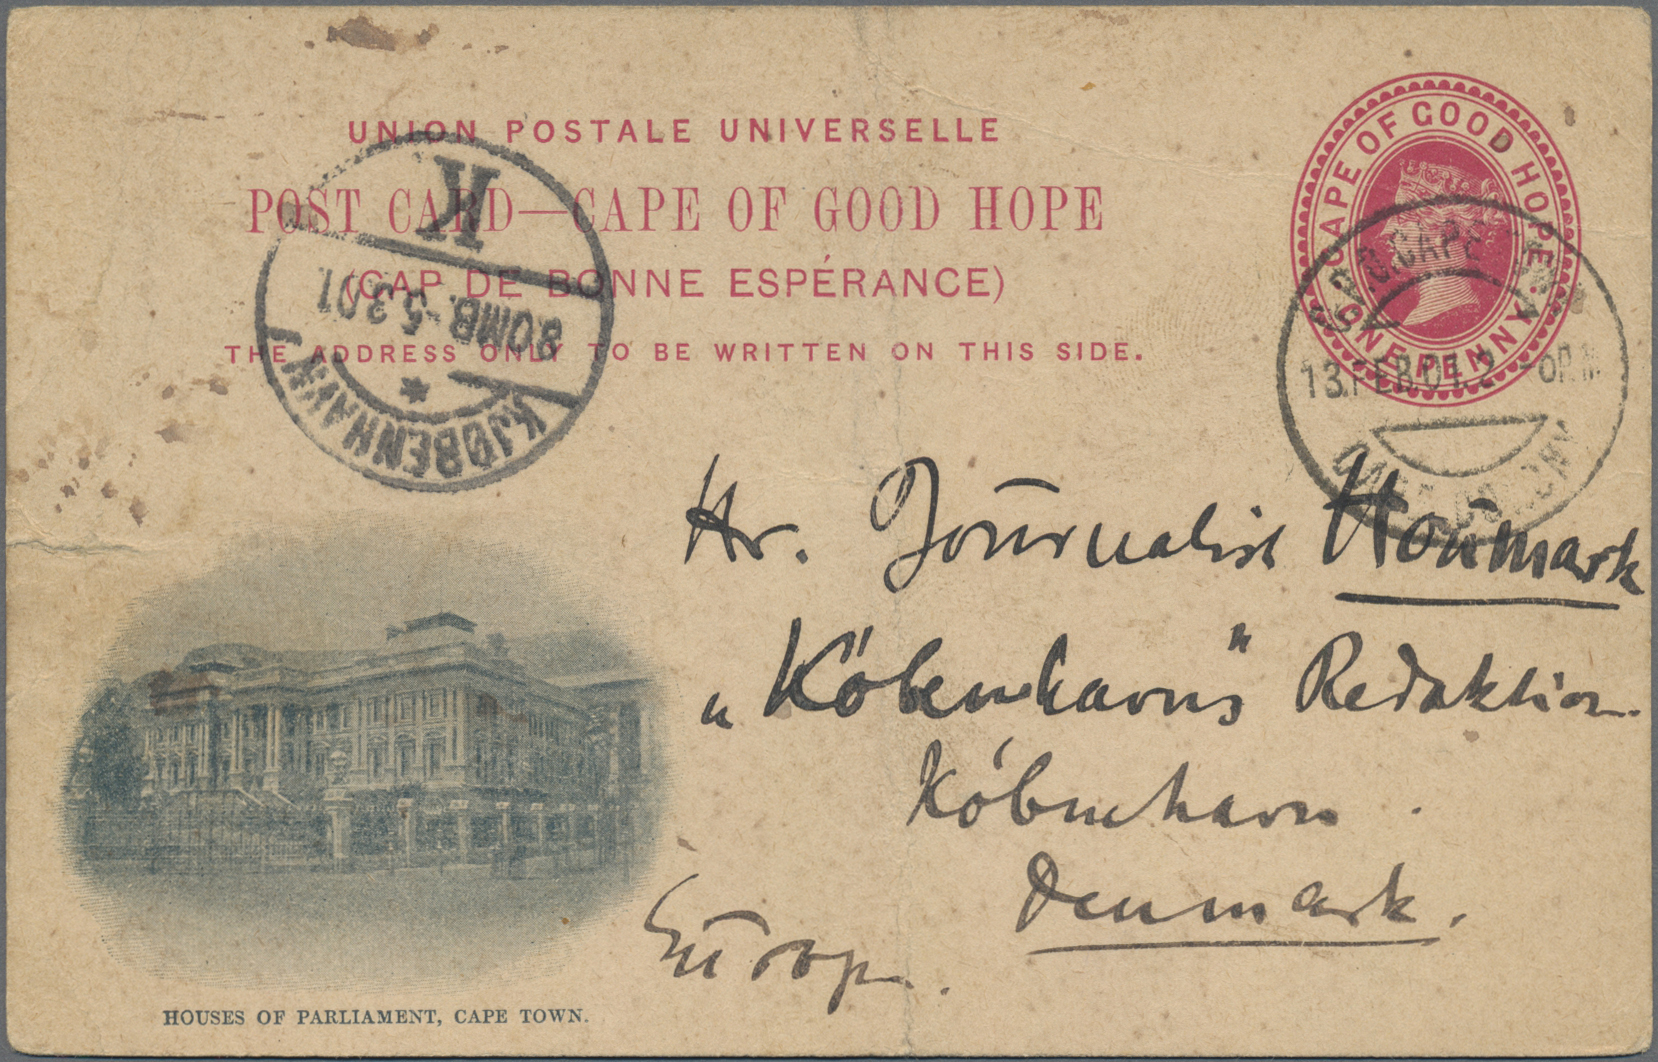 UNION POSTALE UNIVERSELLE
POST CARD—CAPE OF GOOD HOPE
(CAP DE BONNE ESPÉRANCE)
THE ADDRESS ONLY TO BE WRITTEN ON THIS SIDE.
CAPE OF GOOD HOPE
ONE PENNY
K
8.OMB. -5.3.01
KJØBENHAVN
G.P.O. CAPE
13.FEB.01. 2 - 0P.M
CAPE COLONY
Hr. Journalist Houmark
„Københavns" Redaktion.
København.
Danmark.
Europa.
HOUSES OF PARLIAMENT, CAPE TOWN.